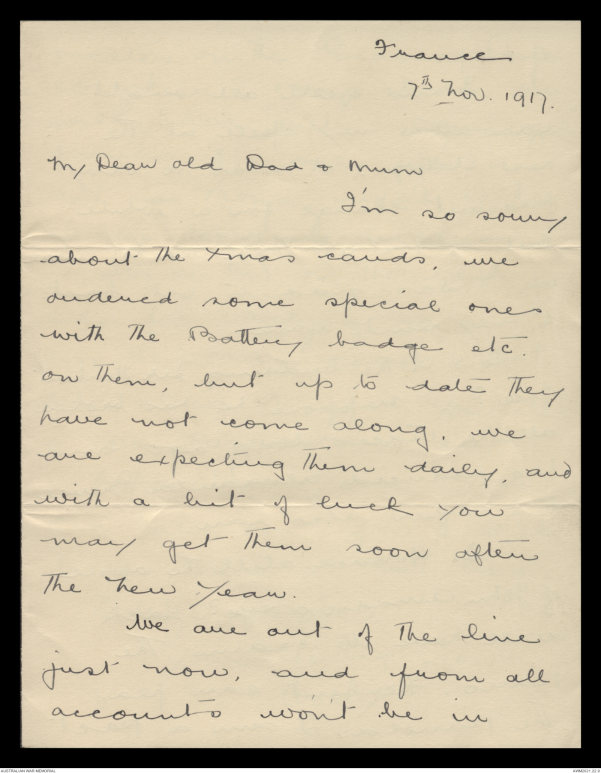 France
7th Nov. 1917.
My Dear old Dad & Mum
I'm so sorry
about the Xmas cards, we
ordered some special ones
with the Battery badge etc.
on them, but up to date they
have not come along, we
are expecting them daily, and
with a bit of luck you
may get them soon after
the New Year.
We are out of the line
just now, and from all
accounts won't be in
AUSTRALIAN WAR MEMORIAL